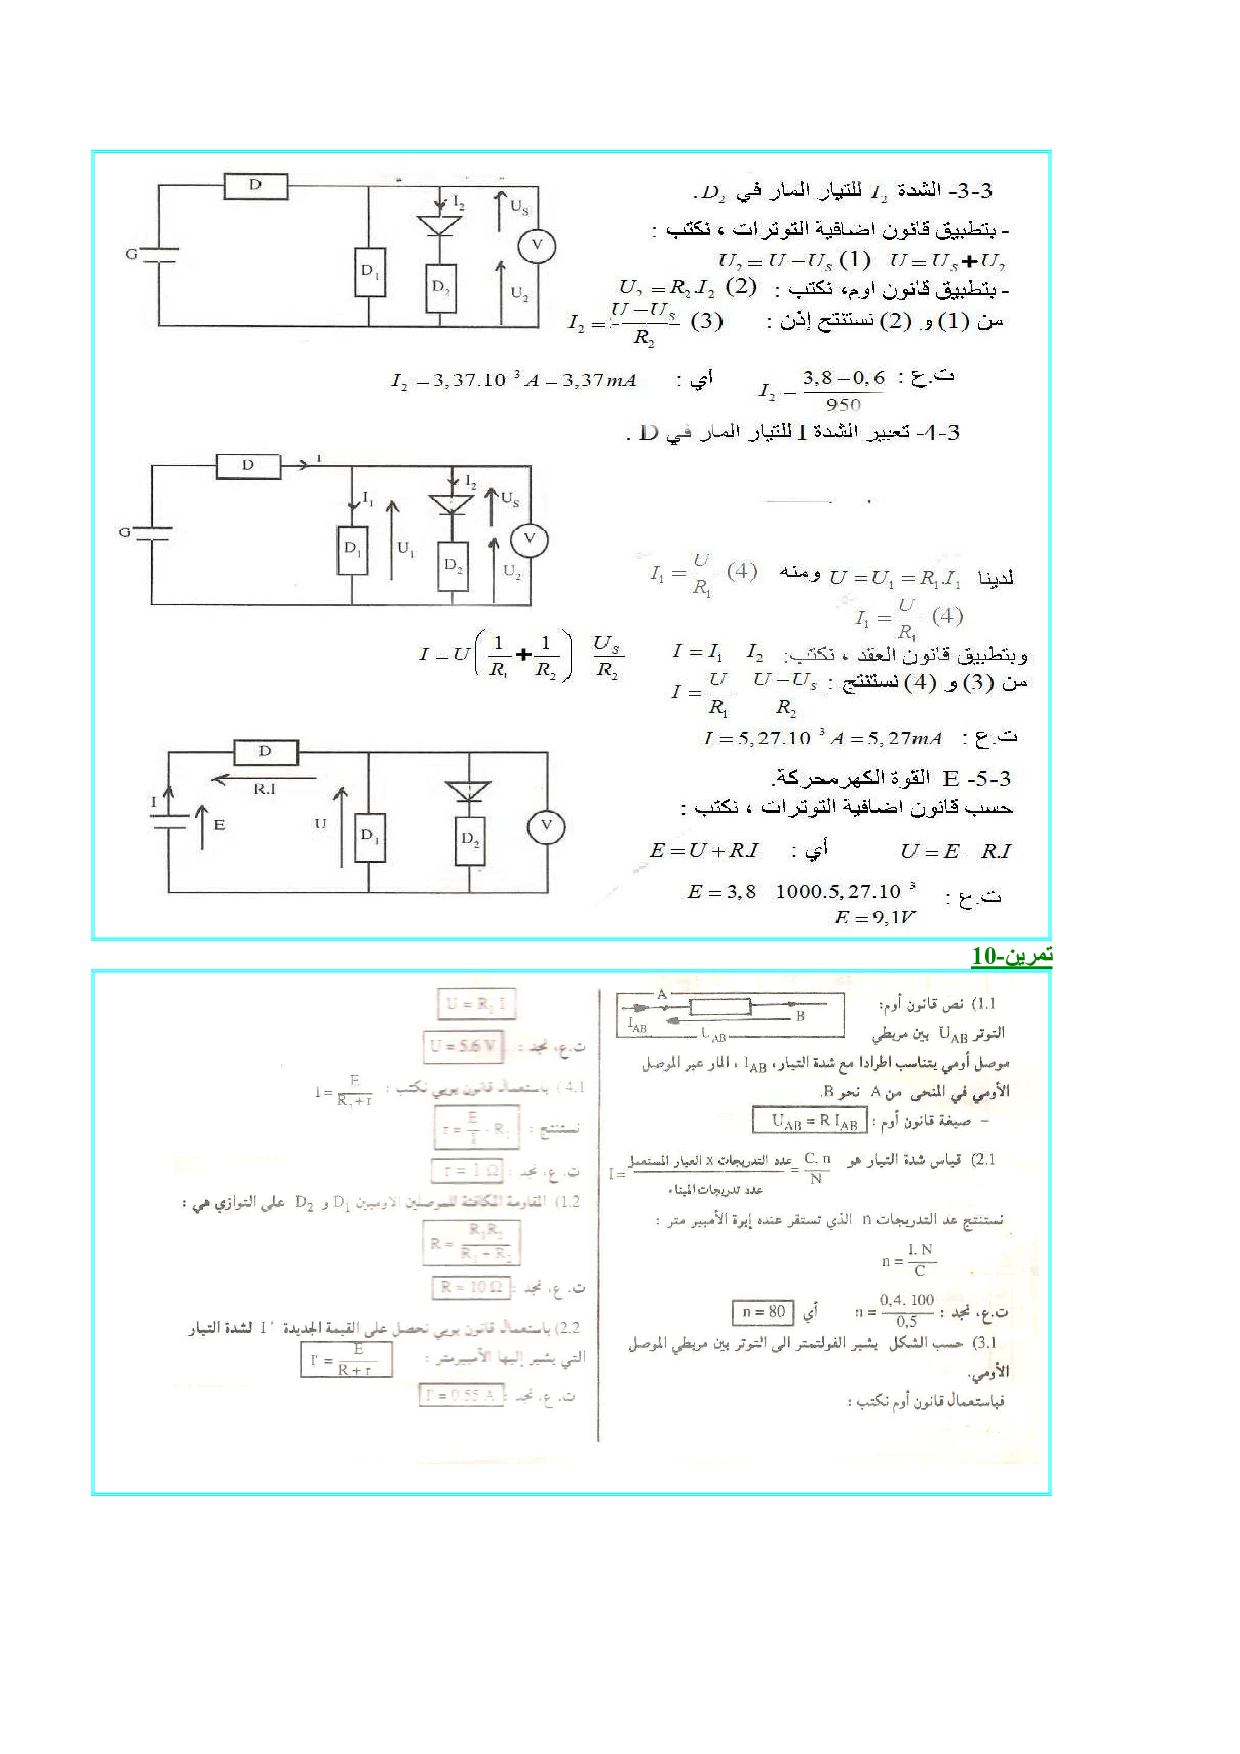 3-3- الشدة I₂ للتيار المار في D₂.
- بتطبيق قانون اضافية التوترات ، نكتب :
U = U_S + U₂ (1) U₂ = U − U_S
- بتطبيق قانون اوم، نكتب : (2) U₂ = R₂.I₂
من (1) و (2) نستنتج إذن : (3) I₂ = (U − U_S) / R₂
ت.ع : I₂ = (3,8 − 0,6) / 950 أي : I₂ = 3,37.10 ³ A = 3,37mA
3-4- تعبير الشدة I للتيار المار في D .
لدينا U = U₁ = R₁.I₁ ومنه (4) I₁ = U / R₁
I₁ = U / R₁ (4)
وبتطبيق قانون العقد ، نكتب: I = I₁ I₂
من (3) و (4) نستنتج : I = U / R₁ (U − U_S) / R₂
I = U (1/R₁ + 1/R₂) U_S / R₂
ت.ع : I = 5,27.10 ³ A = 5,27mA
3-5- E القوة الكهرمحركة.
حسب قانون اضافية التوترات ، نكتب :
U = E R.I أي : E = U + R.I
ت.ع : E = 3,8 1000.5,27.10 ³
E = 9,1V
D
G
D₁
I₂
D₂
U_S
U₂
V
D
I
G
I₁
D₁
U₁
I₂
D₂
U_S
U₂
V
D
R.I
I
E
U
D₁
D₂
V
تمرين-10
1.1) نص قانون أوم:
A
B
I_AB
U_AB
التوتر U_AB بين مربطي
موصل أومي يتناسب اطرادا مع شدة التيار، I_AB ، المار عبر الموصل
الأومي في المنحى من A نحو B.
- صيغة قانون أوم : U_AB = R I_AB
2.1) قياس شدة التيار هو I = عدد التدريجات x العيار المستعمل / عدد تدريجات الميناء = C. n / N
نستنتج عد التدريجات n الذي تستقر عنده إبرة الأمبير متر :
n = I. N / C
ت.ع، نجد : n = 0,4. 100 / 0,5 أي n = 80
3.1) حسب الشكل يشير الفولتمتر الى التوتر بين مربطي الموصل
الأومي.
فباستعمال قانون أوم نكتب :
U = R₁ I
ت.ع، نجد : U = 5.6 V
4.1) باستعمال قانون بويي نكتب : I = E / R₁ + r
نستنتج : r = E / I - R₁
ت.ع، نجد : r = 1 Ω
1.2) المقاومة المكافئة للموصلين الاوميين D₁ و D₂ على التوازي هي :
R = R₁R₂ / R₁ + R₂
ت.ع، نجد : R = 10 Ω
2.2) باستعمال قانون بويي نحصل على القيمة الجديدة I ' لشدة التيار
التي يشير إليها الأمبيرمتر : I' = E / R + r
ت.ع، نجد : I' = 0.55 A